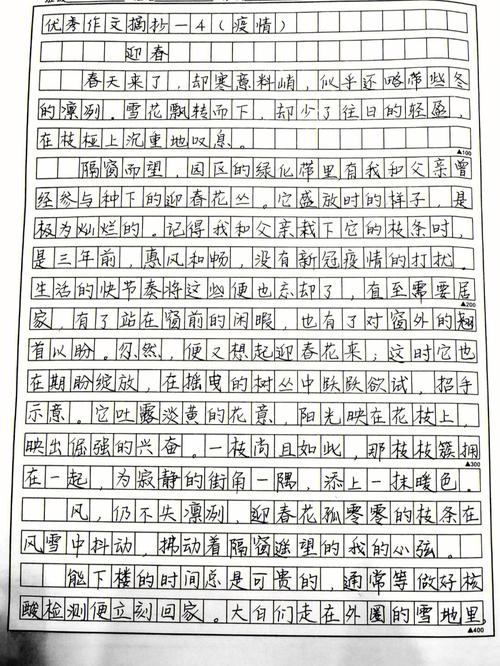 优秀作文摘抄一4（疫情）
迎春
春天来了，却寒意料峭，似乎还略带些冬
的凛冽。雪花飘转而下，却少了往日的轻盈，
在枝桠上沉重地叹息。
▲100
隔窗而望，园区的绿化带里有我和父亲曾
经参与种下的迎春花丛。它盛放时的样子，是
极为灿烂的。记得我和父亲栽下它的枝条时，
是三年前，惠风和畅，没有新冠疫情的打扰。
生活的快节奏将这些便也忘却了，直至需要居
▲200
家，有了站在窗前的闲暇，也有了对窗外的翘
首以盼。忽然，便又想起迎春花来；这时它也
在期盼绽放，在摇曳的树丛中跃跃欲试，招手
示意。它吐露淡黄的花意，阳光映在花枝上，
映出倔强的兴奋。一枝尚且如此，那枝枝簇拥
▲300
在一起，为寂静的街角一隅，添上一抹暖色。
风，仍不失凛冽，迎春花孤零零的枝条在
风雪中抖动，拂动着隔窗遥望的我的心弦。
能下楼的时间总是可贵的，通常等做好核
酸检测便立刻回家。大白们走在外圈的雪地里，
▲400